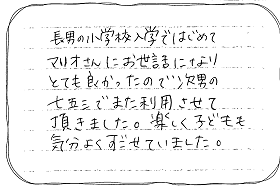 長男の小学校入学ではじめて
マリオさんにお世話になり
とても良かったので次男の
七五三でまた利用させて
頂きました。楽しく子どもも
気分よくすごせていました。